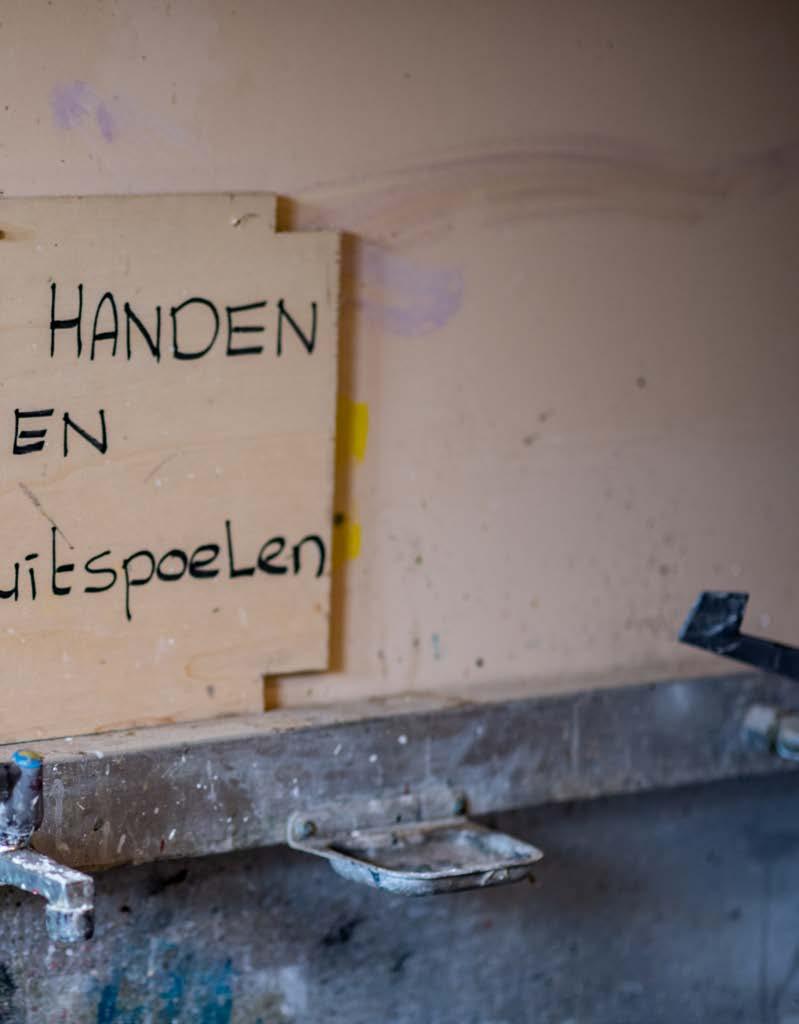 HANDEN
EN
uitspoelen